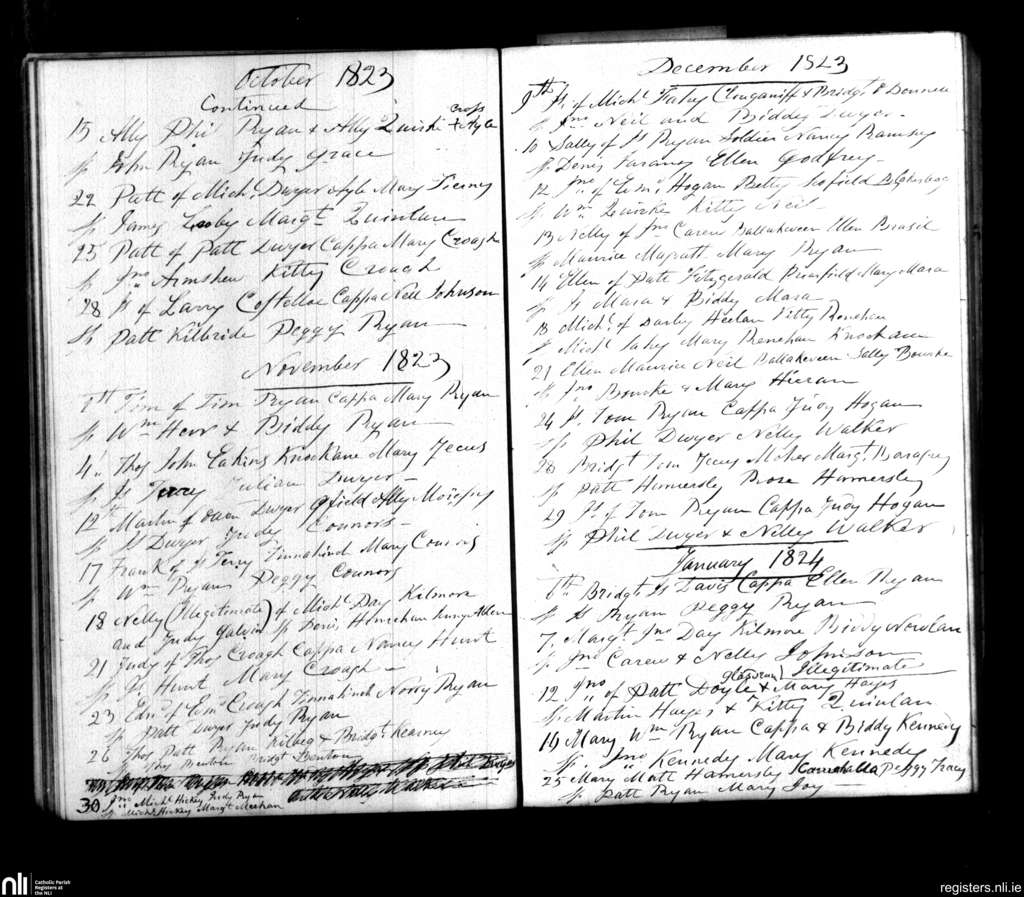 October 1823
Continued
15 Ally Phil Ryan & Ally Quirk Cross + Ayle
Sp John Ryan Judy Grace
22 Patt of Michl Dwyer Ayle Mary Tierney
Sp James Margt Quinlan
25 Patt of Patt Dwyer Cappa Mary Croagh
Sp Jno Armshew Kitty Croagh
28 Js of Larry Costelloe Cappa Nell Johnson
Sp Patt Kilbride Peggy Ryan
November 1823
1th Tim of Tim Ryan Cappa Mary Ryan
Sp Wm Herr & Biddy Ryan
4 Thos John Eakins Knockane Mary Tecus
Sp Js Terry Julian Dwyer
12th Martin of Owen Dwyer Ally
Sp Js Dwyer Judy Connors
17 Frank of Js Terry Tinnakinch Mary Connors
Sp Wm Ryan Peggy Connors
18 Nelly (Illegitimate) of Michl Day Kilmore
and Judy Galvin Sp Denis
21 Judy of Thos Croagh Cappa Nancy Hunt
Sp Js Hunt Mary Croagh
23 Edmd of Edm Croagh Tinnakinch Norry Ryan
Sp Patt Dwyer Judy Ryan
26 Thos Patt Ryan Kilbeg & Bridgt Kearney
Sp Thos Bridgt
30 Jno Michl Hickey Judy Ryan
Sp Michl Hickey Margt Meehan
December 1823
9th Js of Michl Fahy Clouganiff & Bridgt
Sp Jno Neil and Biddy Dwyer
10 Sally of Js Ryan Soldier Nancy Ramsey
Sp Denis Ellen Godfrey
12 Jno of Edmd Hogan Betty
Sp Wm Quirke Kitty Neil
13 Nelly of Jno Carew Ballakeveen Ellen Brasil
Sp Maurice Magratt Mary Ryan
14 Ellen of Patt Fitzgerald Primfield Mary Mara
Sp Js Mara & Biddy Mara
18 Michl of Darby Heelan Kitty Renehan
Sp Michl Fahy Mary Renehan Knockane
21 Ellen Maurice Neil Ballakeveen Sally Bourke
Sp Jno Bourke & Mary
24 Js Tom Ryan Cappa Judy Hogan
Sp Phil Dwyer Nelly Walker
28 Bridgt Tom Margt
Sp Patt Hamersley Rose Hamersley
29 Js of Tom Ryan Cappa Judy Hogan
Sp Phil Dwyer & Nelly Walker
January 1824
6th Bridgt Js Davis Cappa Ellen Ryan
Sp Js Ryan Peggy Ryan
7 Margt Jno Day Kilmore Biddy Nowlan
Sp Jno Carew & Nelly Johnson
12 Jno of Patt Doyle & Mary Hayes Illegitimate
Sp Martin Hayes & Kitty Quinlan
14 Mary Wm Ryan Cappa & Biddy Kennedy
Sp Jno Kennedy Mary Kennedy
25 Mary Matt Hamersley Peggy Tracy
Sp Patt Ryan Mary Joy
nli Catholic Parish
Registers at
the NLI
registers.nli.ie